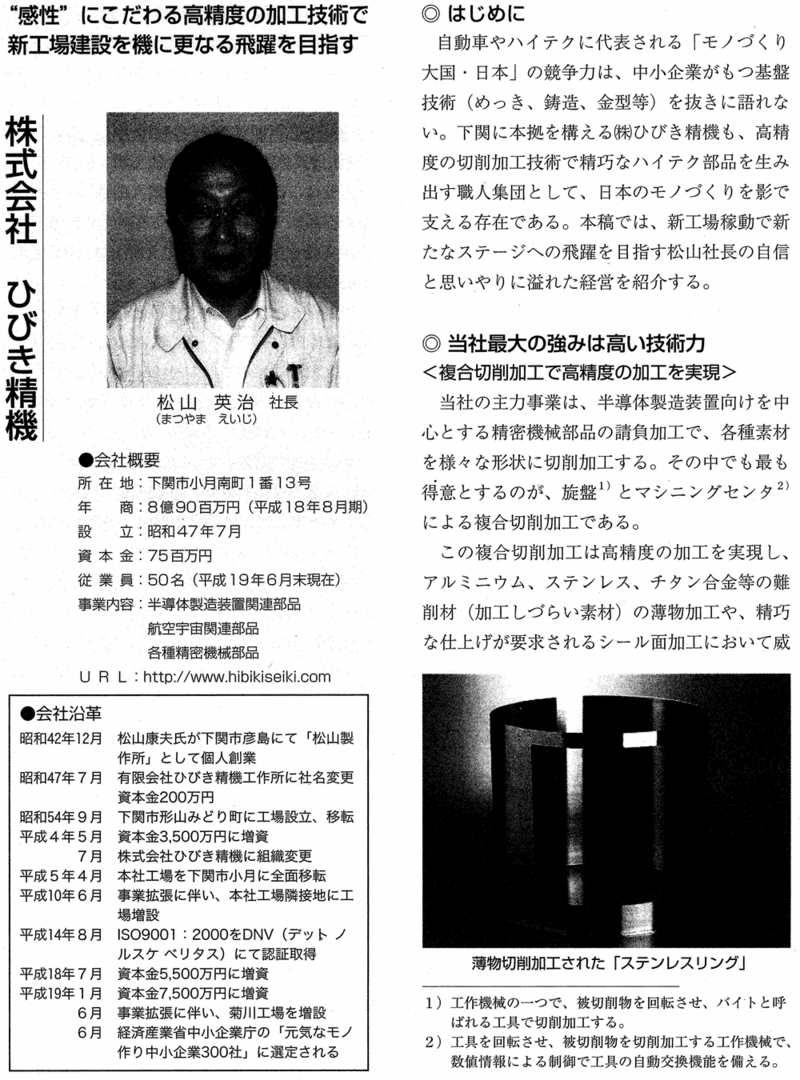 “感性”にこだわる高精度の加工技術で
新工場建設を機に更なる飛躍を目指す
株式会社 ひびき精機
松山 英治 社長
(まつやま えいじ)
●会社概要
所在地：下関市小月南町1番13号
年商：8億90百万円（平成18年8月期）
設立：昭和47年7月
資本金：75百万円
従業員：50名（平成19年6月末現在）
事業内容：半導体製造装置関連部品
航空宇宙関連部品
各種精密機械部品
URL：http://www.hibikiseiki.com
●会社沿革
昭和42年12月 松山康夫氏が下関市彦島にて「松山製
作所」として個人創業
昭和47年7月 有限会社ひびき精機工作所に社名変更
資本金200万円
昭和54年9月 下関市形山みどり町に工場設立、移転
平成4年5月 資本金3,500万円に増資
7月 株式会社ひびき精機に組織変更
平成5年4月 本社工場を下関市小月に全面移転
平成10年6月 事業拡張に伴い、本社工場隣接地に工
場増設
平成14年8月 ISO9001：2000をDNV（デット ノ
ルスケ ベリタス）にて認証取得
平成18年7月 資本金5,500万円に増資
平成19年1月 資本金7,500万円に増資
6月 事業拡張に伴い、菊川工場を増設
6月 経済産業省中小企業庁の「元気なモノ
作り中小企業300社」に選定される
◎ はじめに
自動車やハイテクに代表される「モノづくり
大国・日本」の競争力は、中小企業がもつ基盤
技術（めっき、鋳造、金型等）を抜きに語れな
い。下関に本拠を構える㈱ひびき精機も、高精
度の切削加工技術で精巧なハイテク部品を生み
出す職人集団として、日本のモノづくりを影で
支える存在である。本稿では、新工場稼動で新
たなステージへの飛躍を目指す松山社長の自信
と思いやりに溢れた経営を紹介する。
◎ 当社最大の強みは高い技術力
＜複合切削加工で高精度の加工を実現＞
当社の主力事業は、半導体製造装置向けを中
心とする精密機械部品の請負加工で、各種素材
を様々な形状に切削加工する。その中でも最も
得意とするのが、旋盤1）とマシニングセンタ2）
による複合切削加工である。
この複合切削加工は高精度の加工を実現し、
アルミニウム、ステンレス、チタン合金等の難
削材（加工しづらい素材）の薄物加工や、精巧
な仕上げが要求されるシール面加工において威
薄物切削加工された「ステンレスリング」
1）工作機械の一つで、被切削物を回転させ、バイトと呼
ばれる工具で切削加工する。
2）工具を回転させ、被切削物を切削加工する工作機械で、
数値情報による制御で工具の自動交換機能を備える。